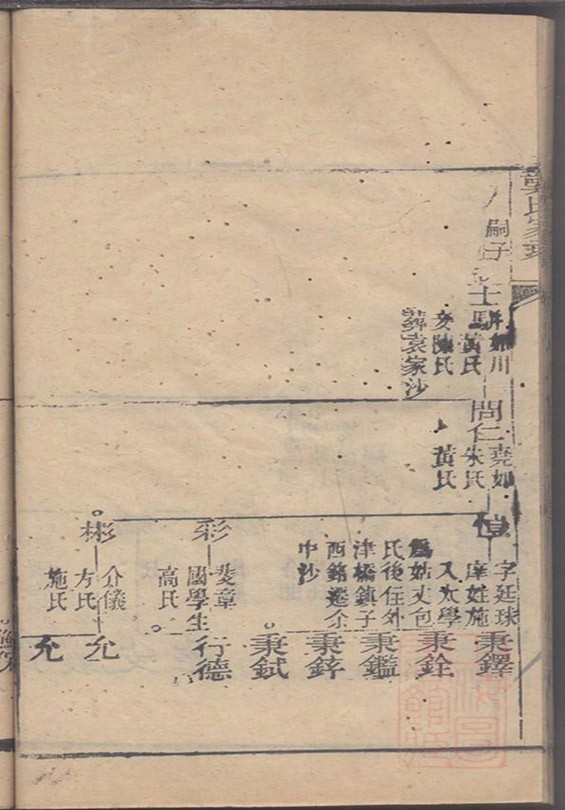 氏家
嗣子
士
黃氏
陳氏
葬袁家沙
問仁
堯如
朱氏
黃氏
愷
字廷球
庠姓施
入太學
爲姑丈包
氏後任外
津橋鎮子
西銘遷余
中沙
秉鐸
秉銓
秉鑑
秉鋅
秉鉽
彩
斐章
國學生
高氏
行德
彬
介儀
方氏
施氏
允
允